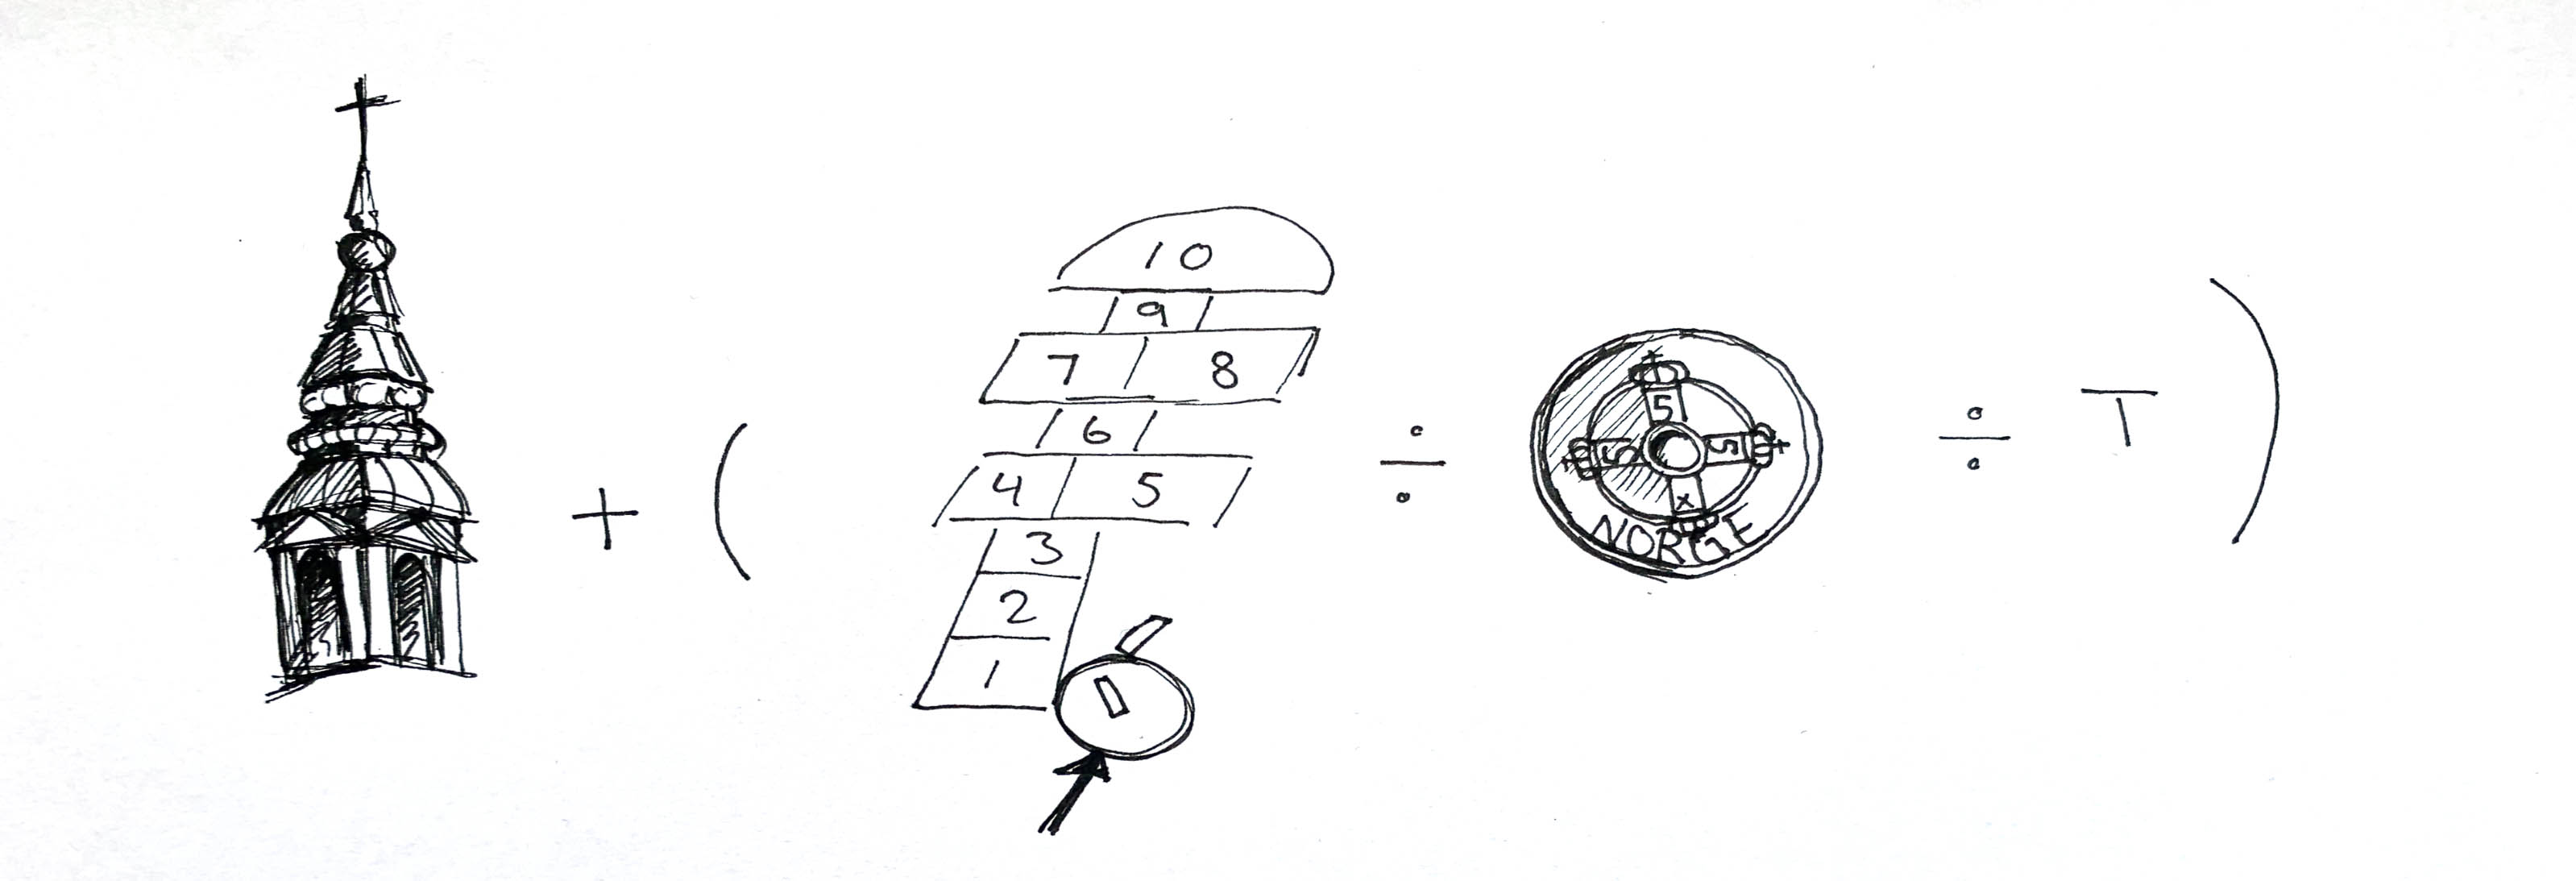 10
9
7 8
6
4 5
3
2
1
+ (
÷
5
5 5
x
NORGE
÷ T )